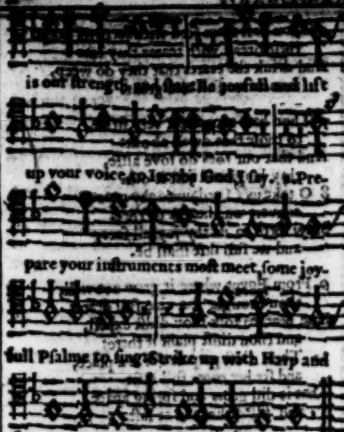 is our strength, and
joyfull and lift
up your voice to Iacobs God I say. Pre-
pare your instruments most meet, some joy-
full Psalme to sing: Strike up with Harp and